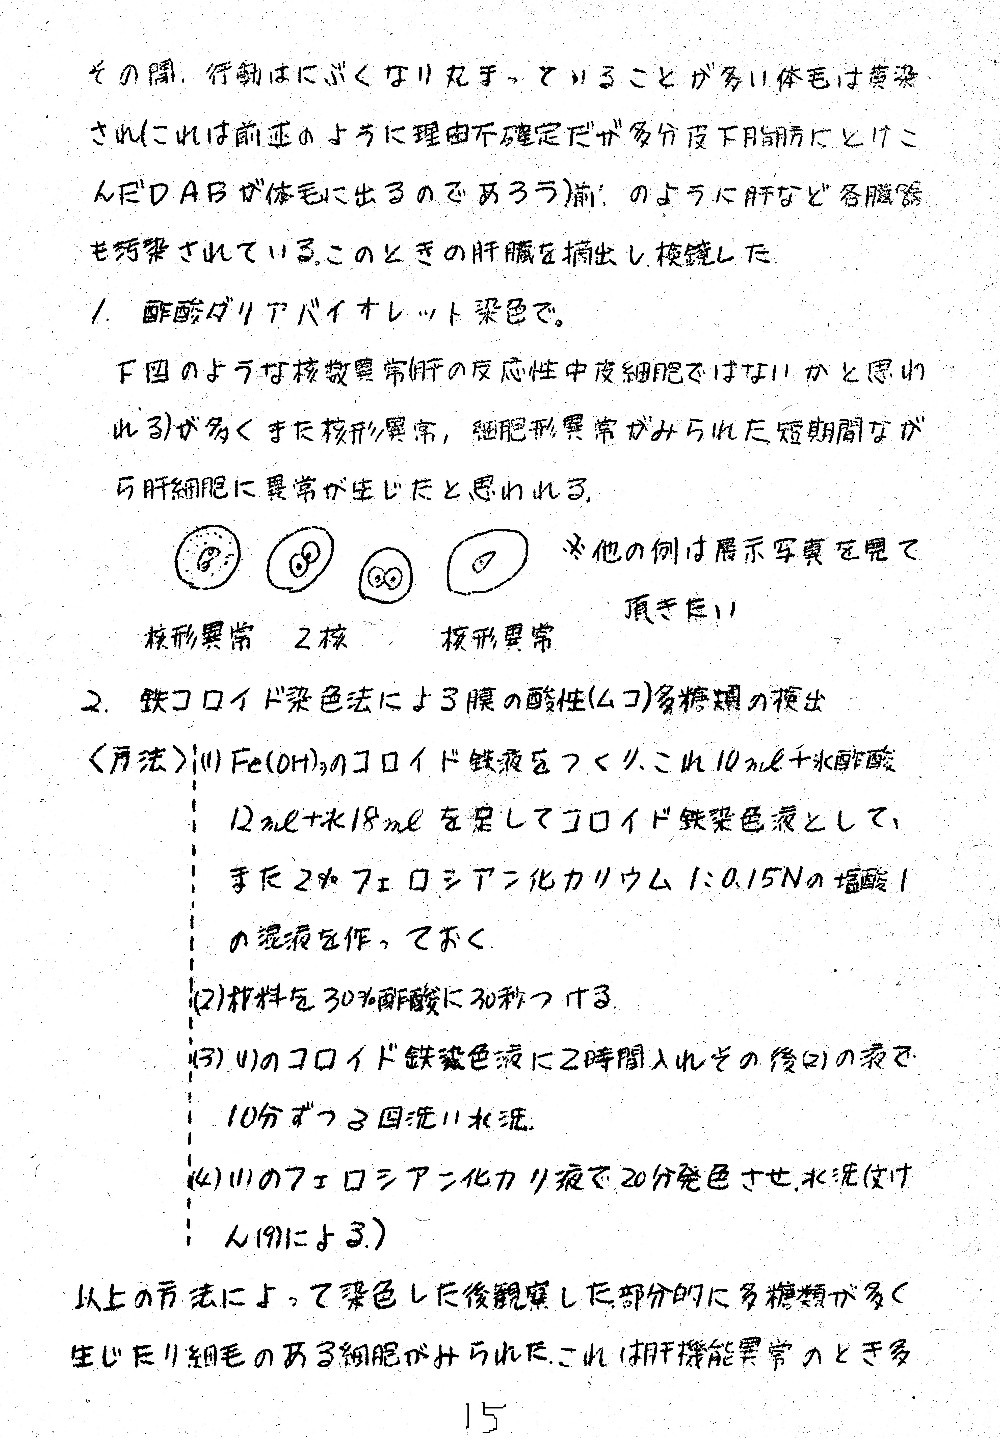 その間、行動はにぶくなり丸まっていることが多い体毛は黄染
され(これは前並のように理由不確定だが多分皮下脂肪にとけこ
んだDABが体毛に出るのであろう)前 のように肝など各臓器
も汚染されている.このときの肝臓を摘出し検鏡した
1. 酢酸ダリアバイオレット染色で。
下図のような核数異常(肝の反応性中皮細胞ではないかと思わ
れる)が多くまた核形異常,細胞形異常がみられた.短期間なが
ら肝細胞に異常が生じたと思われる.
※他の例は展示写真を見て
頂きたい
核形異常 2核 核形異常
2. 鉄コロイド染色法による膜の酸性(ムコ)多糖類の検出
<方法> (1) Fe(OH)₃のコロイド鉄液をつくり、これ10ml+氷酢酸
12ml+水18mlを足してコロイド鉄染色液として、
また2%フェロシアン化カリウム1:0.15Nの塩酸1
の混液を作っておく.
(2)材料を30%酢酸に30秒つける
(3)(1)のコロイド鉄染色液に2時間入れその後(2)の液で
10分ずつ3回洗い水洗.
(4)(1)のフェロシアン化カリ液で20分発色させ.水洗(文け
ん(9)による.)
以上の方法によって染色した後観察した.部分的に多糖類が多く
生じたり細毛のある細胞がみられた.これは肝機能異常のとき多
15